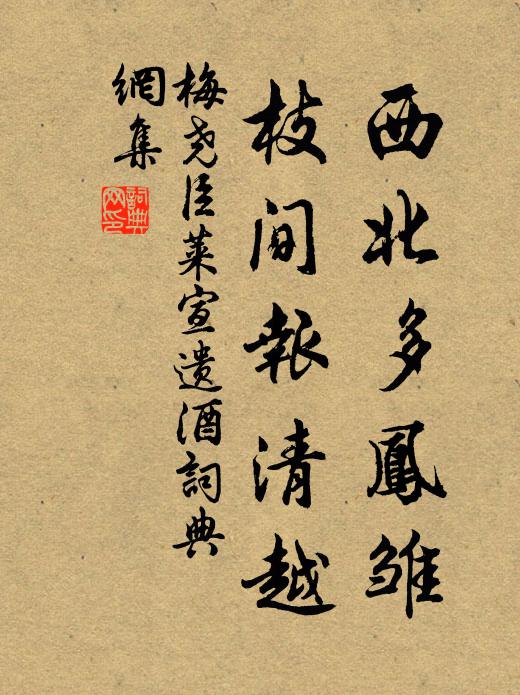 西北多鳳雛
枝間報清越
梅尧臣萊宣遗酒詞典
網集
詞典
网印